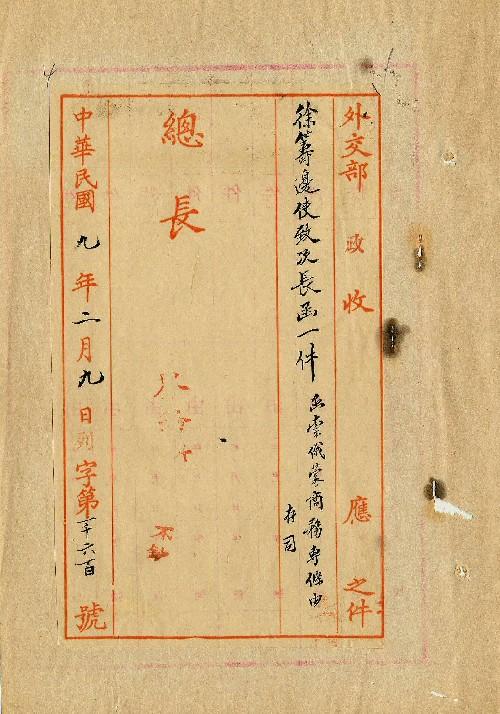 外交部政收應之件
徐籌邊使致次長函一件
函索俄蒙商務專條由
存司
總長
中華民國九年二月九日列字第一千六百號